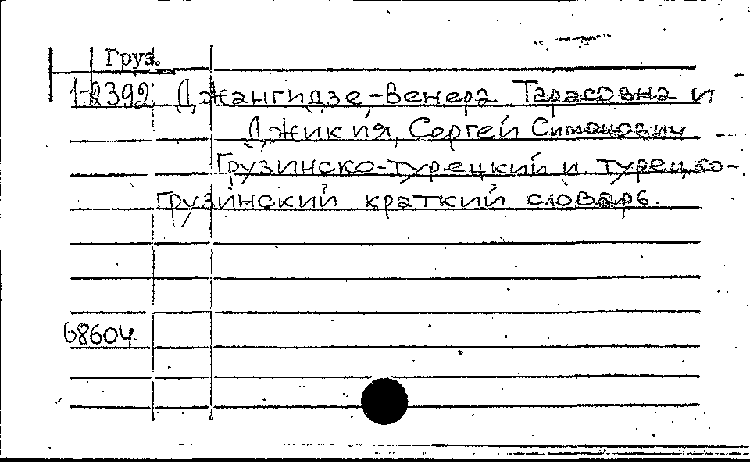 Груз.
1-2392 Джангидзе-Венера Тарасовна и
Джикия, Сергей Симонович
Грузинско-турецкий и турецко-
грузинский краткий словарь.
68604